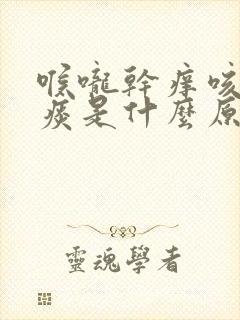 喉嚨幹痒咳
痰是什麼原
靈魂學者